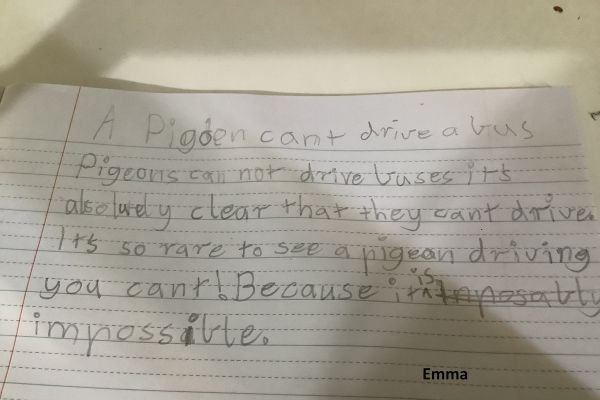 A Pigoen cant drive a bus
Pigeons can not drive buses its
alsolutely clear that they cant drive.
Its so rare to see a pigean driving
you cant! Because it is
impossible.
Emma